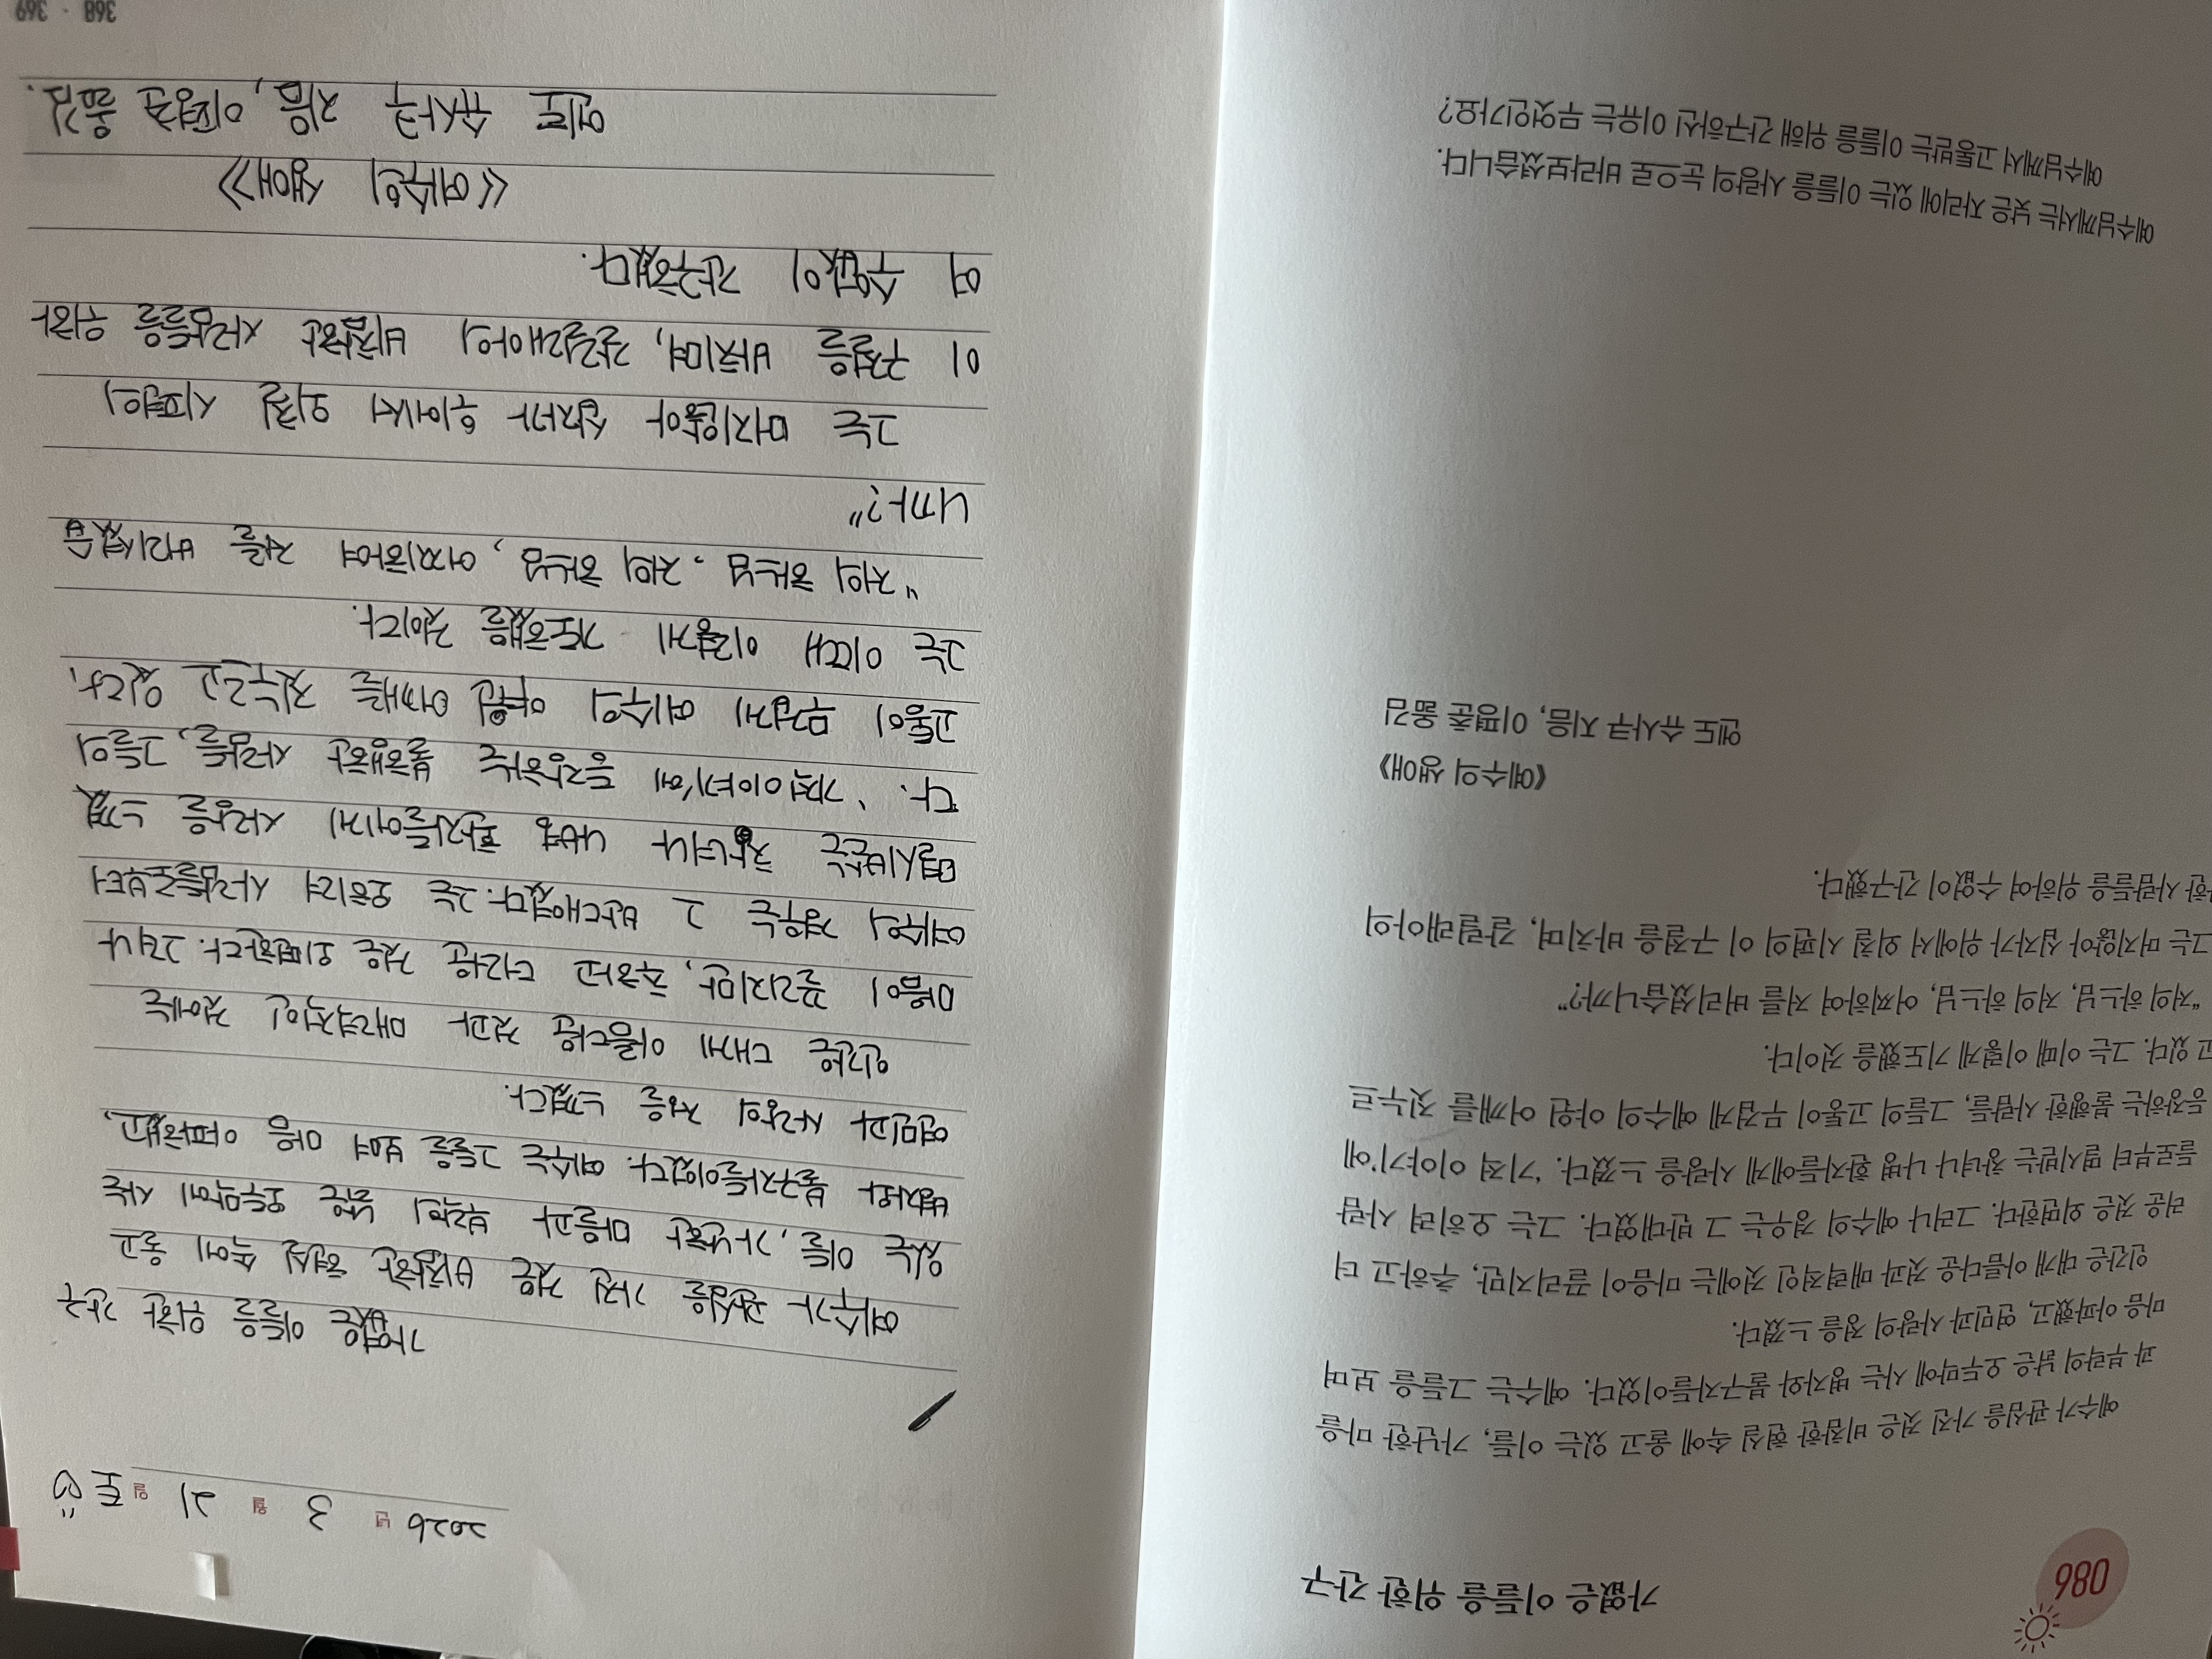 086
가엾은 이들을 위한 간구
예수가 관심을 가진 것은 비참한 현실 속에 울고 있는 이들, 가난한 마을
과 부락의 낡은 오두막에 사는 병자와 불구자들이었다. 예수는 그들을 보며
마음 아파했고, 연민과 사랑의 정을 느꼈다.
인간은 대개 아름다운 것과 매력적인 것에는 마음이 끌리지만, 추하고 더
러운 것은 외면한다. 그러나 예수의 경우는 그 반대였다. 그는 오히려 사람
들로부터 멸시받는 창녀나 나병 환자들에게 사랑을 느꼈다. ‘기적 이야기’에
등장하는 불행한 사람들, 그들의 고통이 무겁게 예수의 야윈 어깨를 짓누르
고 있다. 그는 이때 이렇게 기도했을 것이다.
“저의 하느님, 저의 하느님, 어찌하여 저를 버리셨습니까?”
그는 머지않아 십자가 위에서 외칠 시편의 이 구절을 바치며, 갈릴래아의
한 사람들을 위하여 수없이 간구했다.
《예수의 생애》
엔도 슈사쿠 지음, 이평춘 옮김
예수님께서는 낮은 자리에 있는 이들을 사랑의 눈으로 바라보셨습니다.
예수님께서 고통받는 이들을 위해 간구하신 이유는 무엇인가요?
2026 년 3 월 21 일 토
가엾은 이들을 위한 간구
예수가 관심을 가진 것은 비참한 현실 속에 울고
있는 이들, 가난한 마을과 부락의 낡은 오두막에 사는
병자와 불구자들이었다. 예수는 그들을 보며 마음 아파했고,
연민과 사랑의 정을 느꼈다.
인간은 대개 아름다운 것과 매력적인 것에는
마음이 끌리지만, 추하고 더러운 것은 외면한다. 그러나
예수의 경우는 그 반대였다. 그는 오히려 사람들로부터
멸시받는 창녀나 나병 환자들에게 사랑을 느꼈
다. ‘기적이야기’에 등장하는 불행한 사람들, 그들의
고통이 무겁게 예수의 야윈 어깨를 짓누르고 있다.
그는 이때 이렇게 기도했을 것이다.
“저의 하느님, 저의 하느님, 어찌하여 저를 버리셨습
니까?”
그는 머지않아 십자가 위에서 외칠 시편의
이 구절을 바치며, 갈릴래아의 비참한 사람들을 위하
여 수없이 간구했다.
《예수의 생애》
엔도 슈사쿠 지음, 이평춘 옮김.
368 · 369